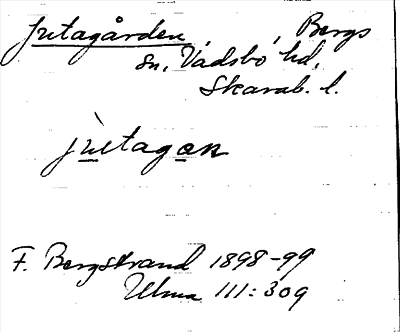 Jutagården, , Bergs
sn, Vadsbo hd,
Skarab. l.
jùtagon
F. Bergstrand 1898-99
Ulma 111:309